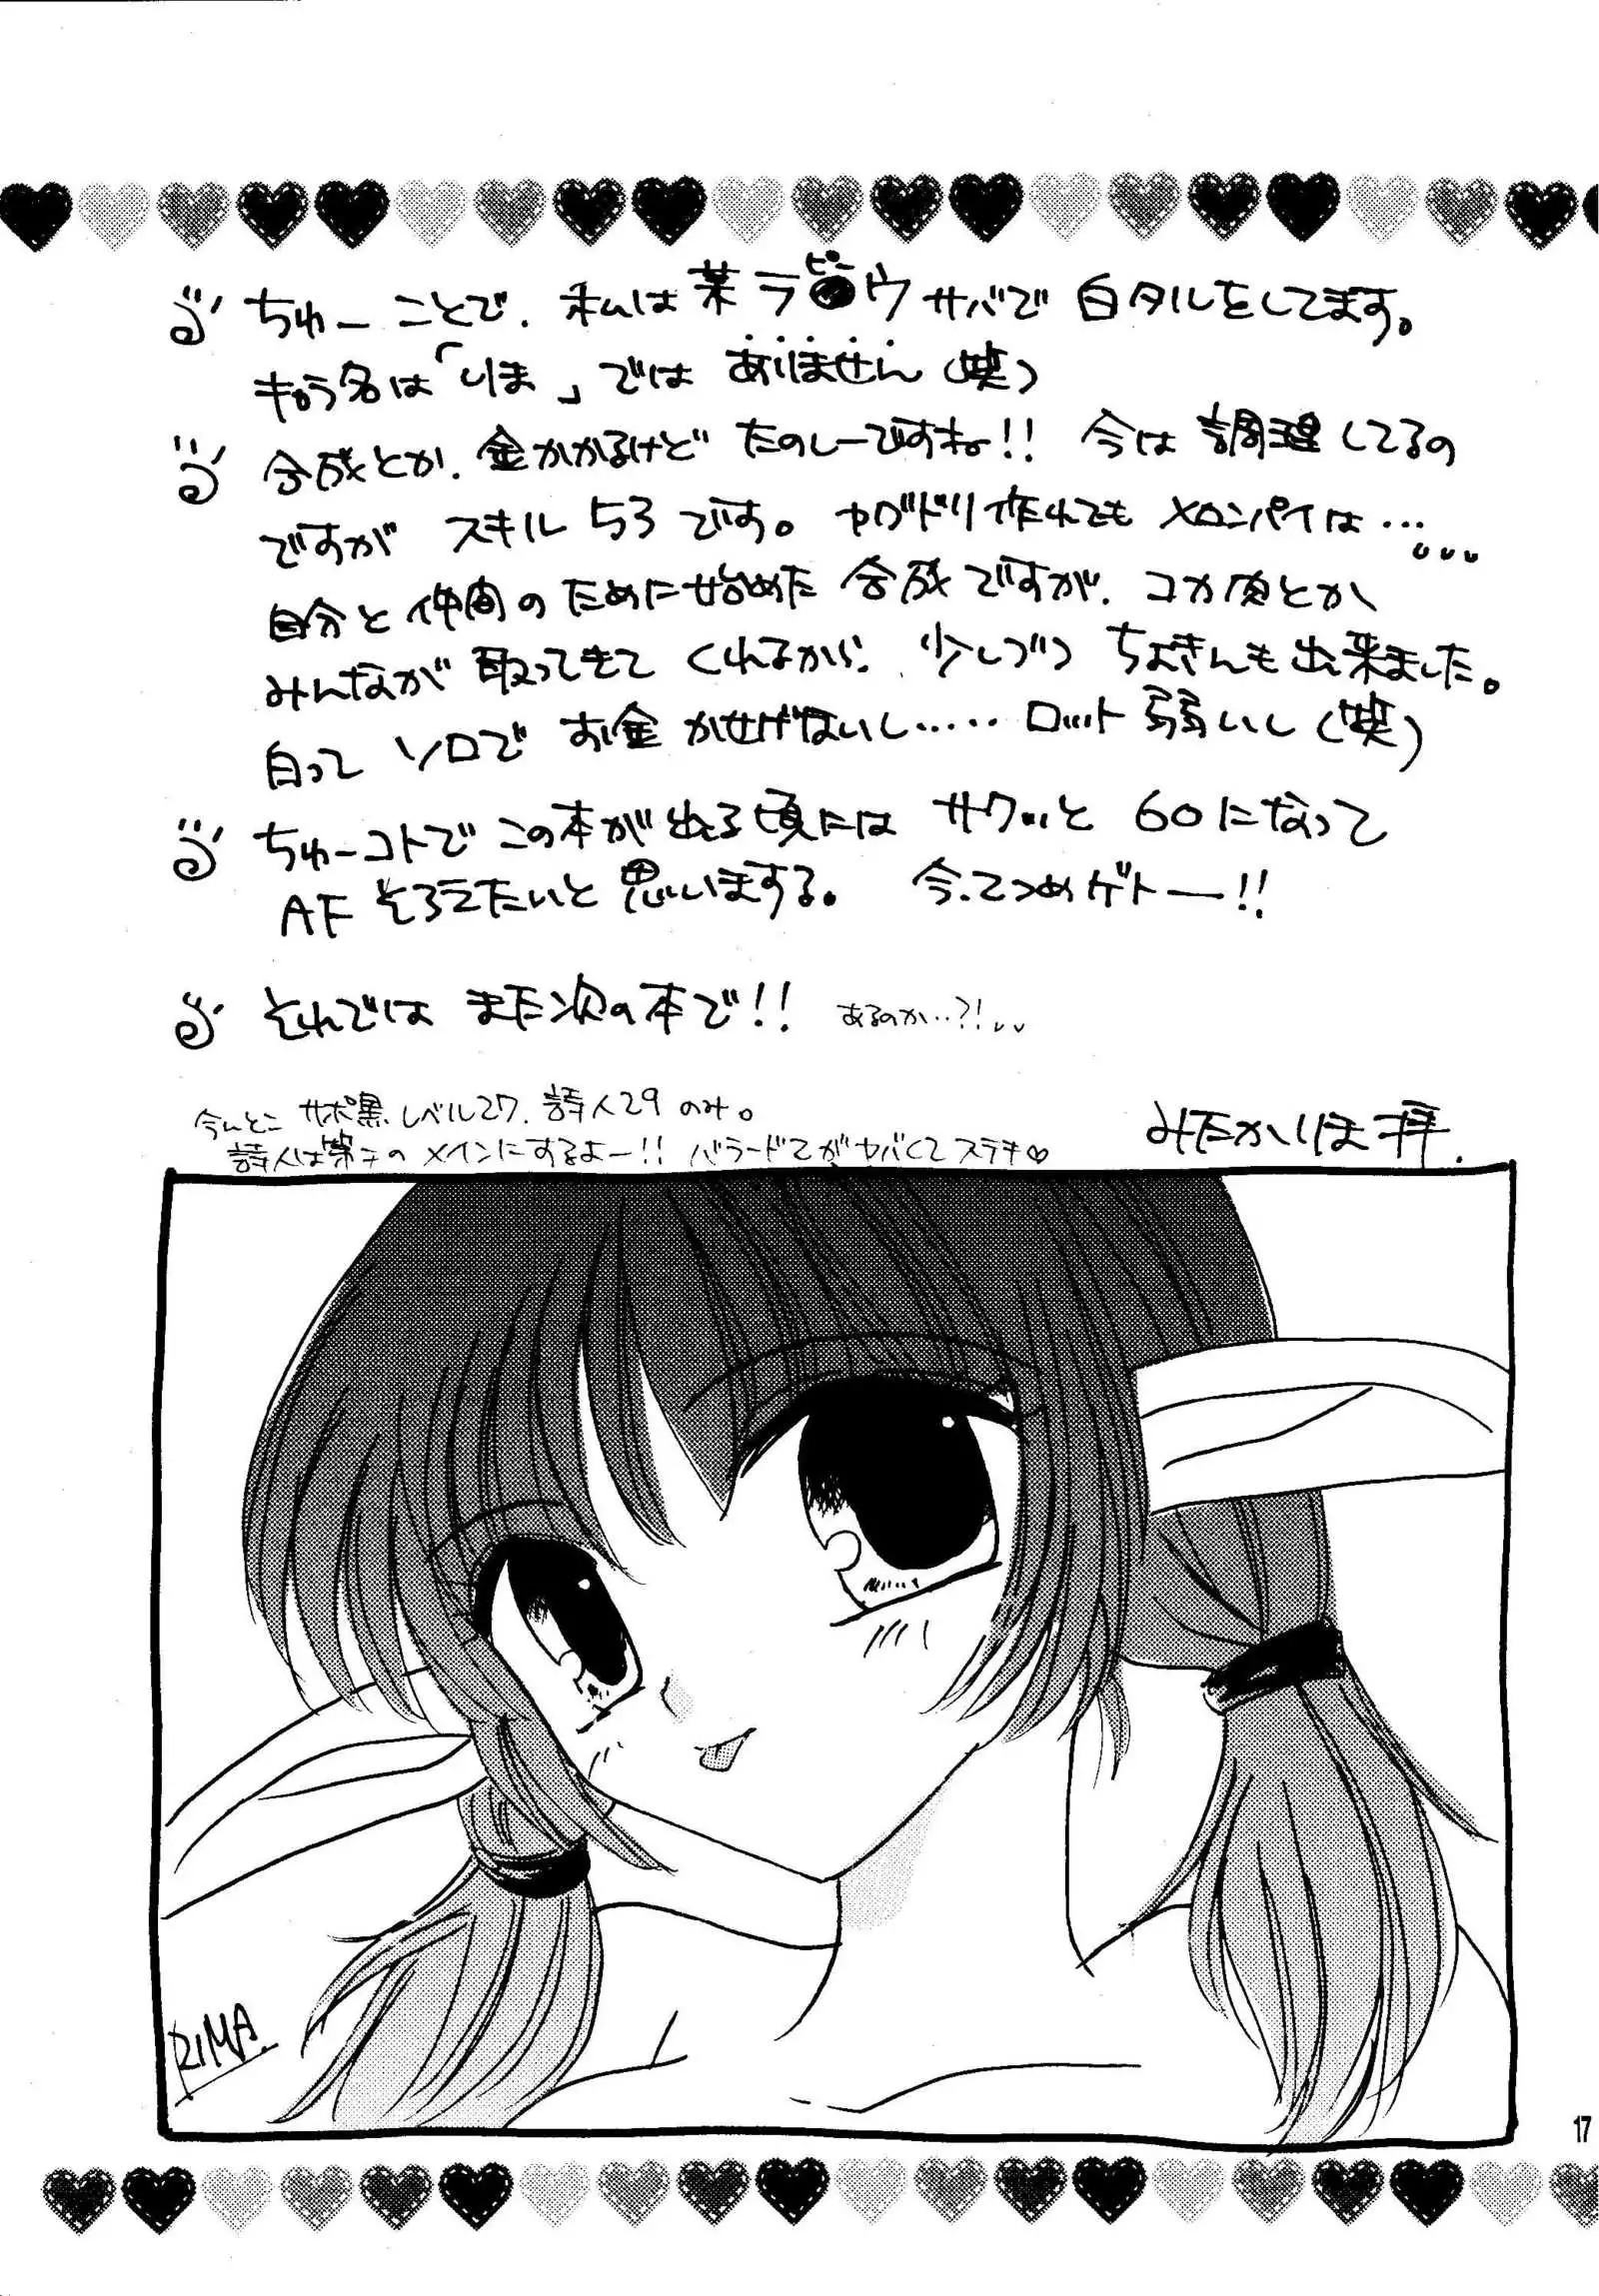 ちゅーことで、私は某ラピ●ウサバで白タルをしてます。
キャラ名は「りま」ではありません(笑)
合成とか、金かかるけどたのしーですね!! 今は調理してるの
ですがスキル53です。ヤグドリ作れてもメロンパイは…
自分と仲間のために始めた合成ですが、コカ肉とか
みんなが取ってきてくれるから、少しづつちょきんも出来ました。
白ってソロでお金かせげないし……ロット弱いし(笑)
ちゅーコトでこの本が出る頃にはサクッと60になって
AFそろえたいと思いまする。 今、てつめゲトー!!
それではまた次の本で!! あるのか…?!
今んとこサポ黒レベル27、詩人29のみ。
詩人は第二のメインにするよー!! バラードてがヤバくてステキ♡
みたかりま拝.
RIMA.
17